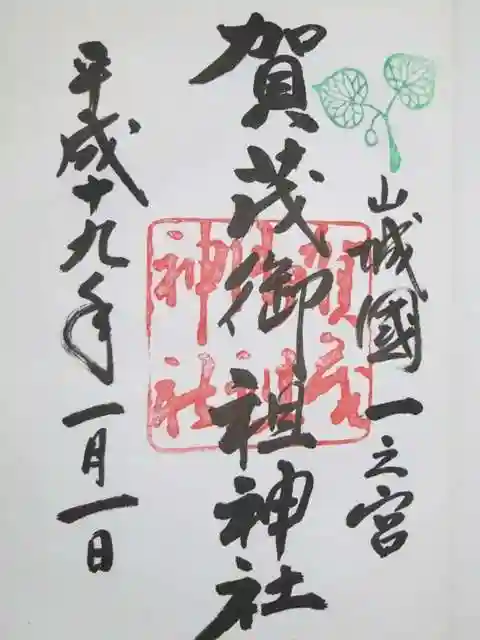 山城國一之宮
賀茂御祖神社
賀茂御祖神社
平成十九年一月一日